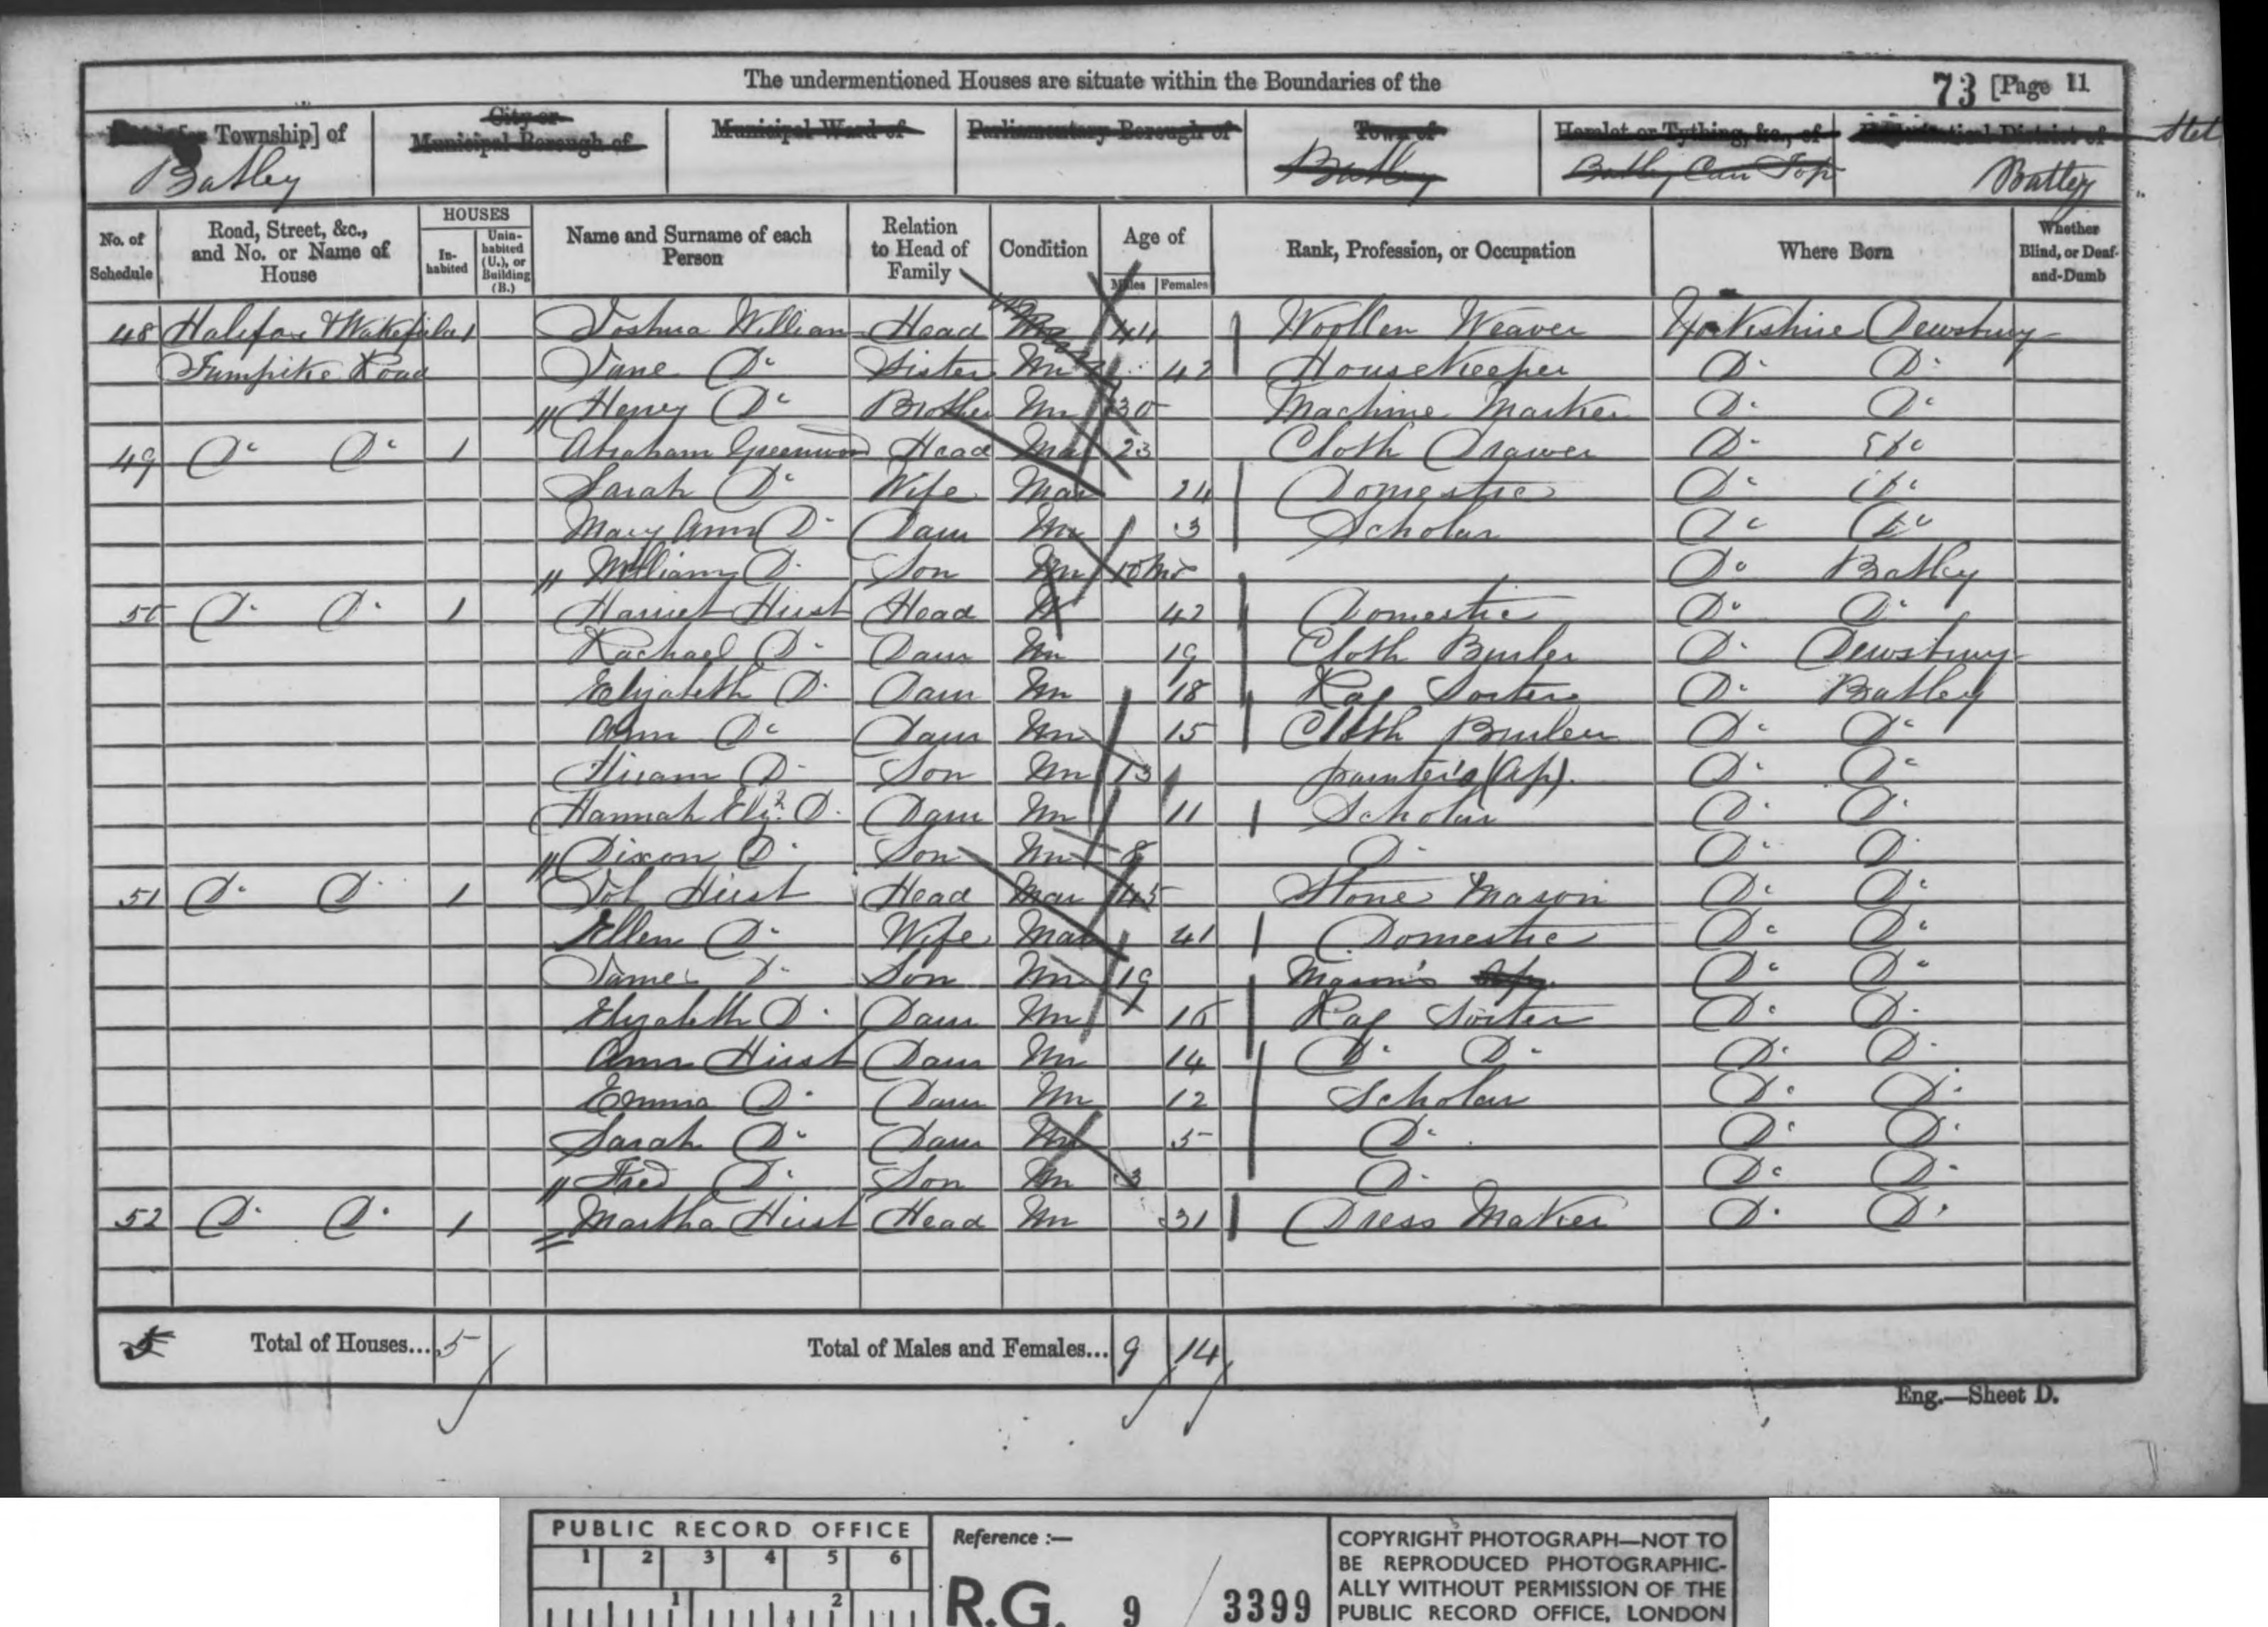 The undermentioned Houses are situate within the Boundaries of the
73 [Page 11
Township] of
City or Municipal Borough of
Municipal Ward of
Parliamentary Borough of
Town of
Hamlet or Tything, &c., of
District of
Stet
Batley
Batley
Batley Carr Top
Batley
No. of Schedule
Road, Street, &c., and No. or Name of House
HOUSES
In-habited
Unin-habited (U.), or Building (B.)
Name and Surname of each Person
Relation to Head of Family
Condition
Age of
Males
Females
Rank, Profession, or Occupation
Where Born
Whether Blind, or Deaf-and-Dumb
48 Halifax & Wakefield 1 Joshua William Head 44 Woollen Weaver Yorkshire Dewsbury
Turnpike Road Jane Do Sister Un 42 Housekeeper Do Do
" Henry Do Brother Un 30 Machine Marker Do Do
49 Do Do 1 Abraham Greenwood Head Mar 23 Cloth Drawer Do Do
Sarah Do Wife Mar 24 Domestic Do Do
Mary Ann Do Daur Un 3 Scholar Do Do
" William Do Son Un 10 Mo Do Batley
50 Do Do 1 Harriet Hirst Head W 42 Domestic Do Do
Rachael Do Daur Un 19 Cloth Burler Do Dewsbury
Elizabeth Do Daur Un 18 Rag Sorter Do Batley
Ann Do Daur Un 15 Cloth Burler Do Do
Hiram Do Son Un 13 painter's (Ap). Do Do
Hannah Elizh Do Daur Un 11 Scholar Do Do
" Dixon Do Son Un 8 Do Do Do
51 Do Do 1 Job Hirst Head Mar 45 Stone Mason Do Do
Ellen Do Wife Mar 41 Domestic Do Do
James Do Son Un 19 Mason's Do Do
Elizabeth Do Daur Un 16 Rag Sorter Do Do
Ann Hirst Daur Un 14 Do Do Do Do
Emma Do Daur Un 12 Scholar Do Do
Sarah Do Daur Un 5 Do Do Do
" Fred Do Son Un 3 Do Do Do
52 Do Do 1 Martha Hirst Head Un 31 Dress Maker Do Do
5 Total of Houses... 5 Total of Males and Females... 9 14
Eng.—Sheet D.
PUBLIC RECORD OFFICE
1 2 3 4 5 6
1 2
Reference :—
R.G. 9 / 3399
COPYRIGHT PHOTOGRAPH—NOT TO
BE REPRODUCED PHOTOGRAPHIC-
ALLY WITHOUT PERMISSION OF THE
PUBLIC RECORD OFFICE, LONDON